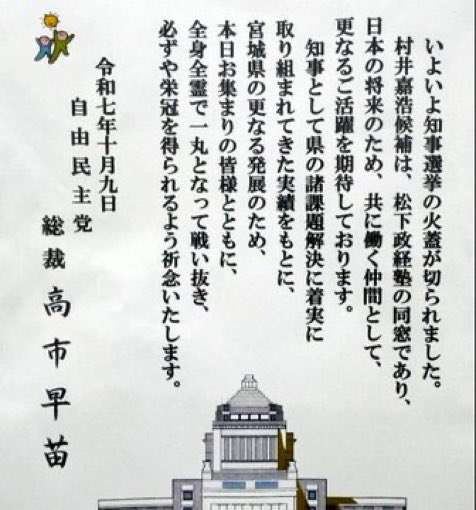 いよいよ知事選挙の火蓋が切られました。
村井嘉浩候補は、松下政経塾の同窓であり、
日本の将来のため、共に働く仲間として、
更なるご活躍を期待しております。
知事として県の諸課題解決に着実に
取り組まれてきた実績をもとに、
宮城県の更なる発展のため、
本日お集まりの皆様とともに、
全身全霊で一丸となって戦い抜き、
必ずや栄冠を得られるよう祈念いたします。
令和七年十月九日
自由民主党
総裁 高市早苗